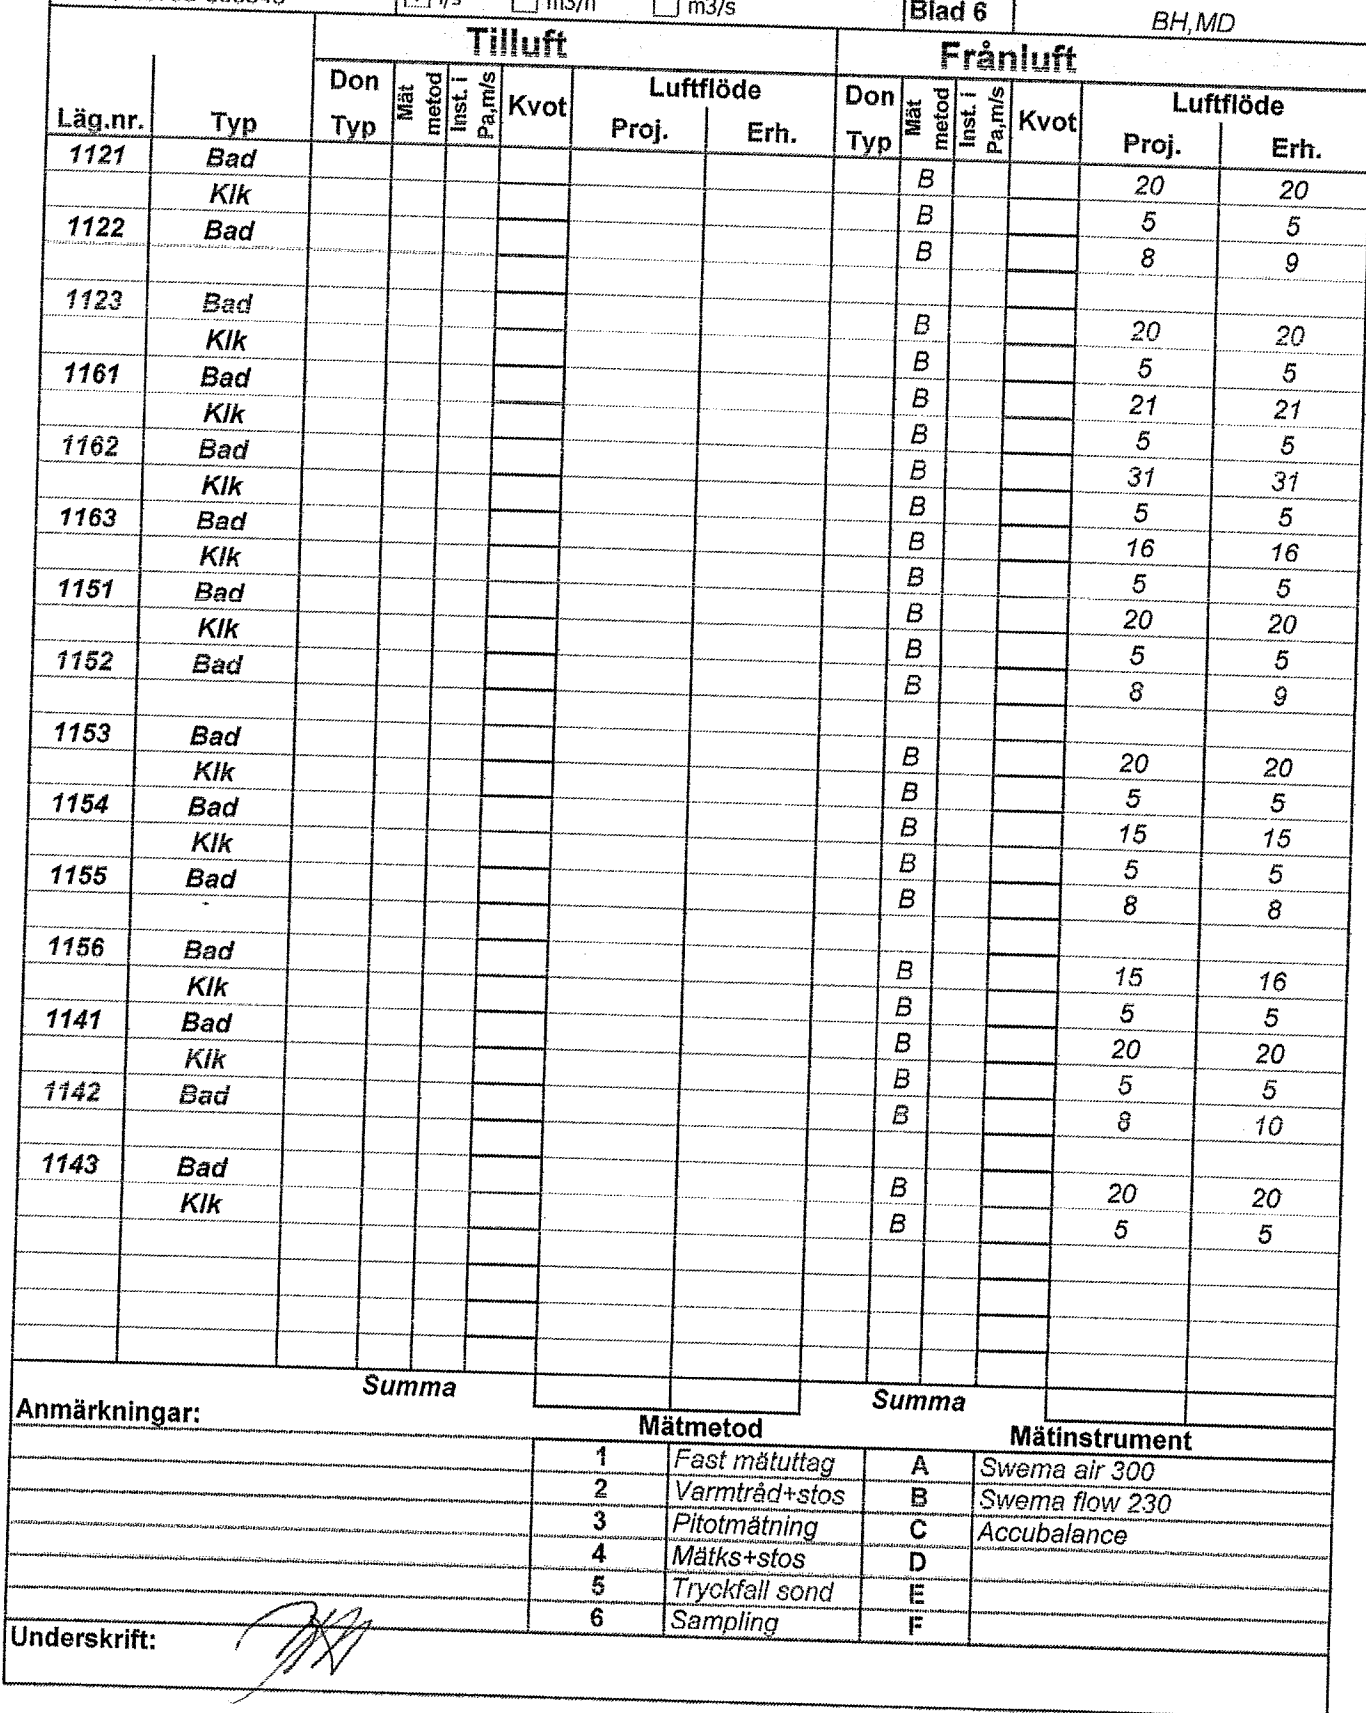 l/s m3/h m3/s Blad 6 BH,MD
Tilluft Frånluft
Läg.nr. Typ Don Typ Mät metod Inst. i Pa,m/s Kvot Luftflöde Proj. Erh. Don Typ Mät metod Inst. i Pa,m/s Kvot Luftflöde Proj. Erh.
1121 Bad B 20 20
Klk B 5 5
1122 Bad B 8 9
1123 Bad B 20 20
Klk B 5 5
1161 Bad B 21 21
Klk B 5 5
1162 Bad B 31 31
Klk B 5 5
1163 Bad B 16 16
Klk B 5 5
1151 Bad B 20 20
Klk B 5 5
1152 Bad B 8 9
1153 Bad B 20 20
Klk B 5 5
1154 Bad B 15 15
Klk B 5 5
1155 Bad B 8 8
1156 Bad B 15 16
Klk B 5 5
1141 Bad B 20 20
Klk B 5 5
1142 Bad B 8 10
1143 Bad B 20 20
Klk B 5 5
Summa Summa
Anmärkningar: Mätmetod Mätinstrument
1 Fast mätuttag A Swema air 300
2 Varmtråd+stos B Swema flow 230
3 Pitotmätning C Accubalance
4 Mätks+stos D
5 Tryckfall sond E
6 Sampling F
Underskrift: